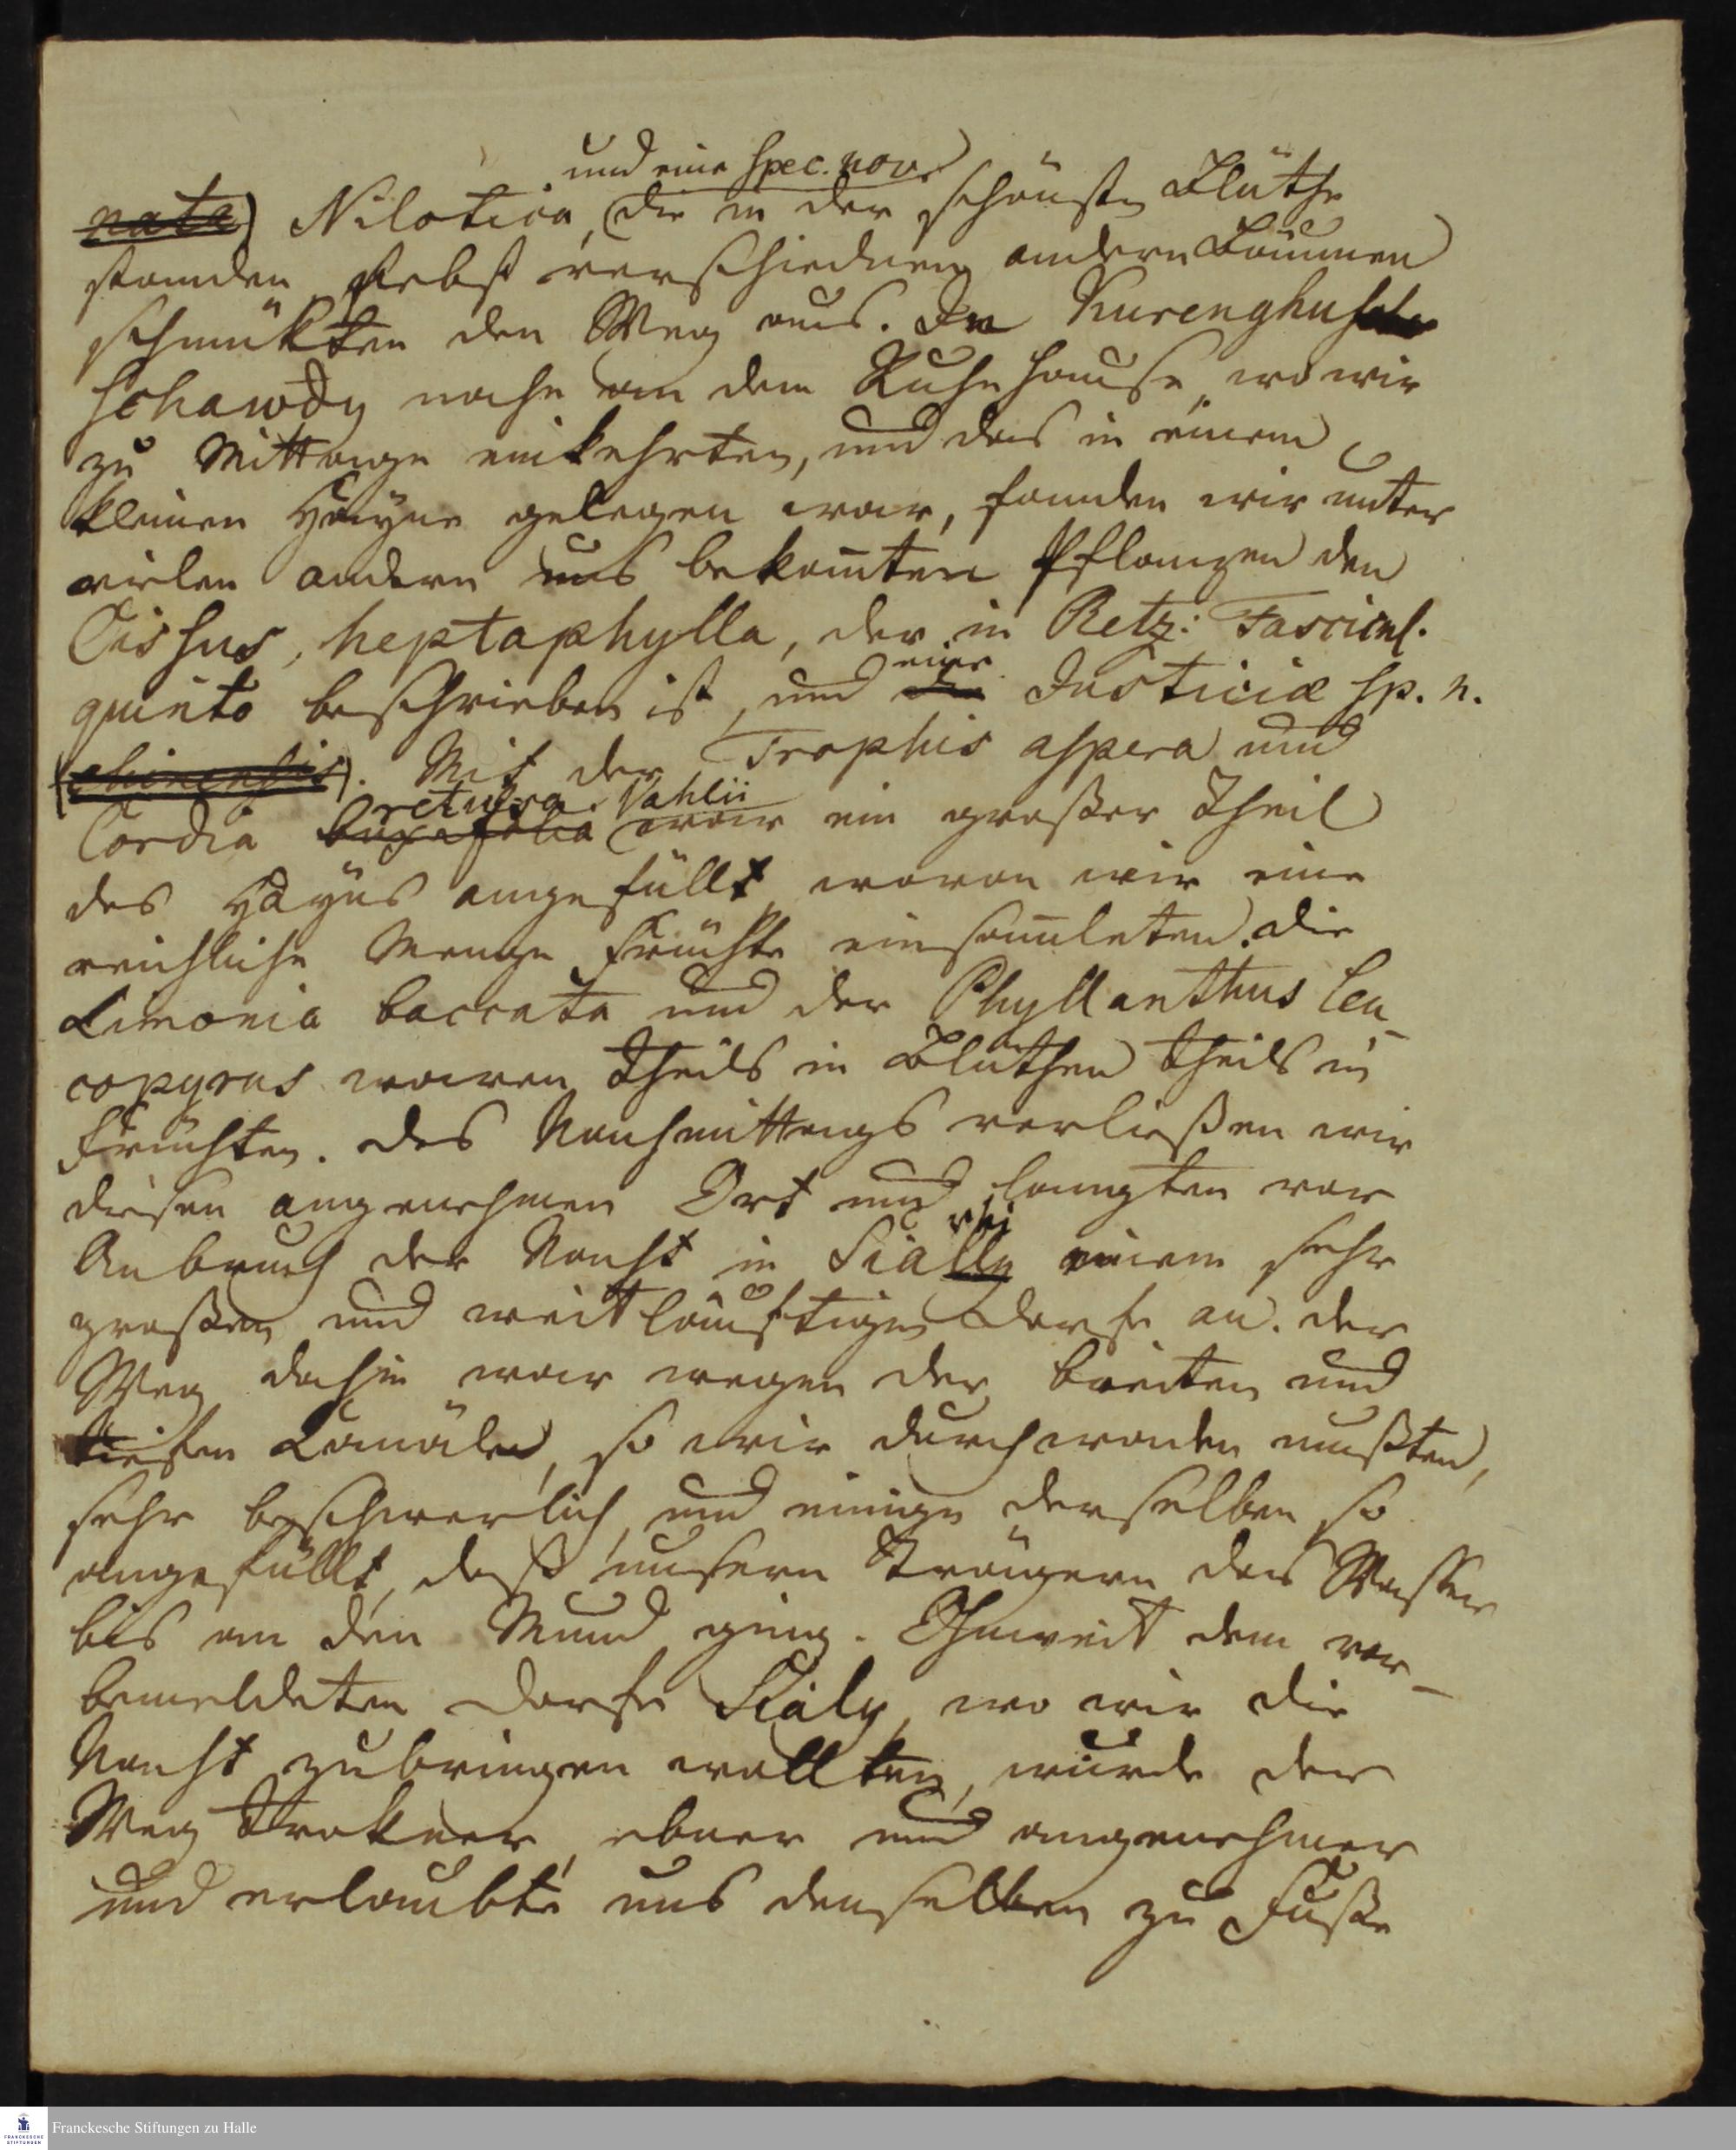 und eine spec. nov.
nata) Nilotica, die in der schönsten Blüthe
standen nebst verschiednen andern Bäumen
schmükten den Weg aus. In Kurenghus
schawdy nahe an dem Ruhehause, wo wir
zu Mittage einkehrten, und das in einem
kleinen Hayne gelegen war, fanden wir unter
vielen andern uns bekanten Pflanzen den
Cissus, heptaphylla, der in Retz: Fascicul.
eine
quinto beschrieben ist, und die Justiciæ sp. n.
(chinensis). Mit der Trophis aspera und
retusa Vahlii
Cordia buxifolia war ein großer Theil
des Hayns angefüllt, wovon wir eine
reichliche Menge Früchte einsamleten. die
Limonia baccata und der Phyllanthus leu-
copyrus waren theils in Blüthen theils in
Früchten. des Nachmittags verließen wir
diesen angenehmen Ort und langten vor
rhi
Anbruch der Nacht in Sially einem sehr
großen und weitläuftigen Dorfe an. der
Weg dahin war wegen der breiten und
tiefen Canäle, so wir durchwaden mußten,
sehr beschwerlich, und einige derselben so
angefüllt, daß unsern Trägern das Wasser
bis an den Mund ging. Ohnweit dem vor-
bemeldeten Dorfe Sialy, wo wir die
Nacht zubringen wollten, wurde der
Weg trokner, ebner und angenehmer
und erlaubte uns denselben zu Fuße
Franckesche Stiftungen zu Halle
FRANCKESCHE
STIFTUNGEN